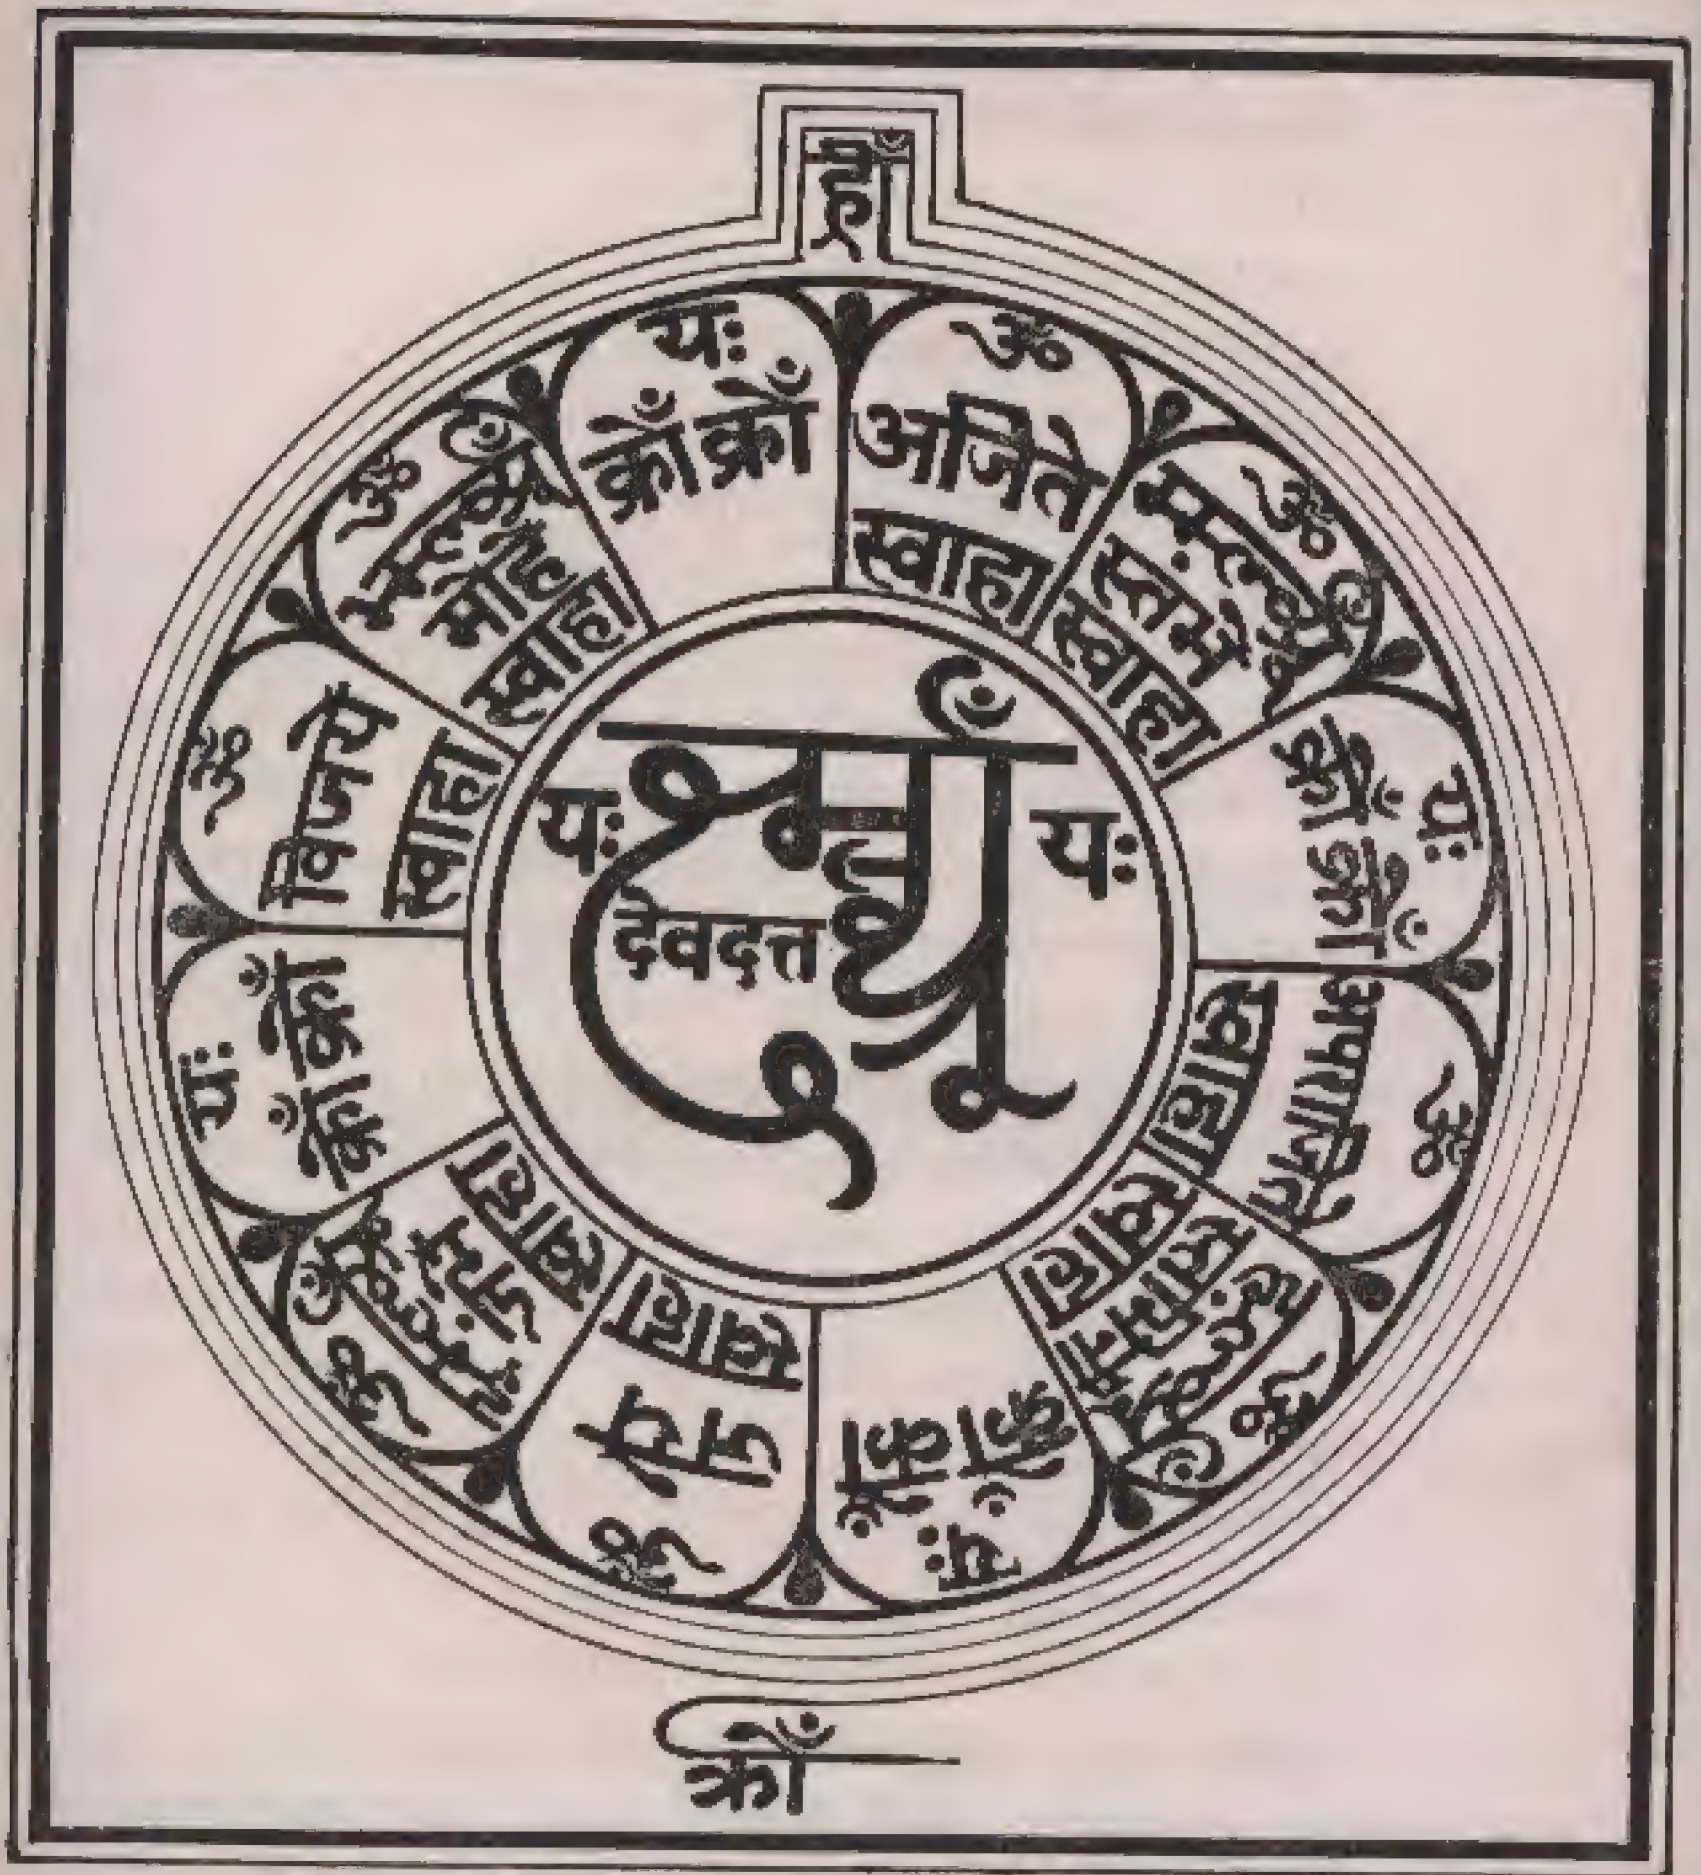 ह्राँ
ॐ
अजिते
स्वाहा
ॐ
स्तंभे
स्वाहा
यः
क्रौँ क्रौँ
ॐ
अपराजिते
स्वाहा
ॐ
स्तंभिनी
स्वाहा
यः
क्रौँ क्रौँ
ॐ
जये
स्वाहा
ॐ
जंभे
स्वाहा
यः
क्रौँ क्रौँ
ॐ
विजये
स्वाहा
ॐ
मोहे
स्वाहा
यः
क्रौँ क्रौँ
यः
यः
देवदत्त
क्रौँ